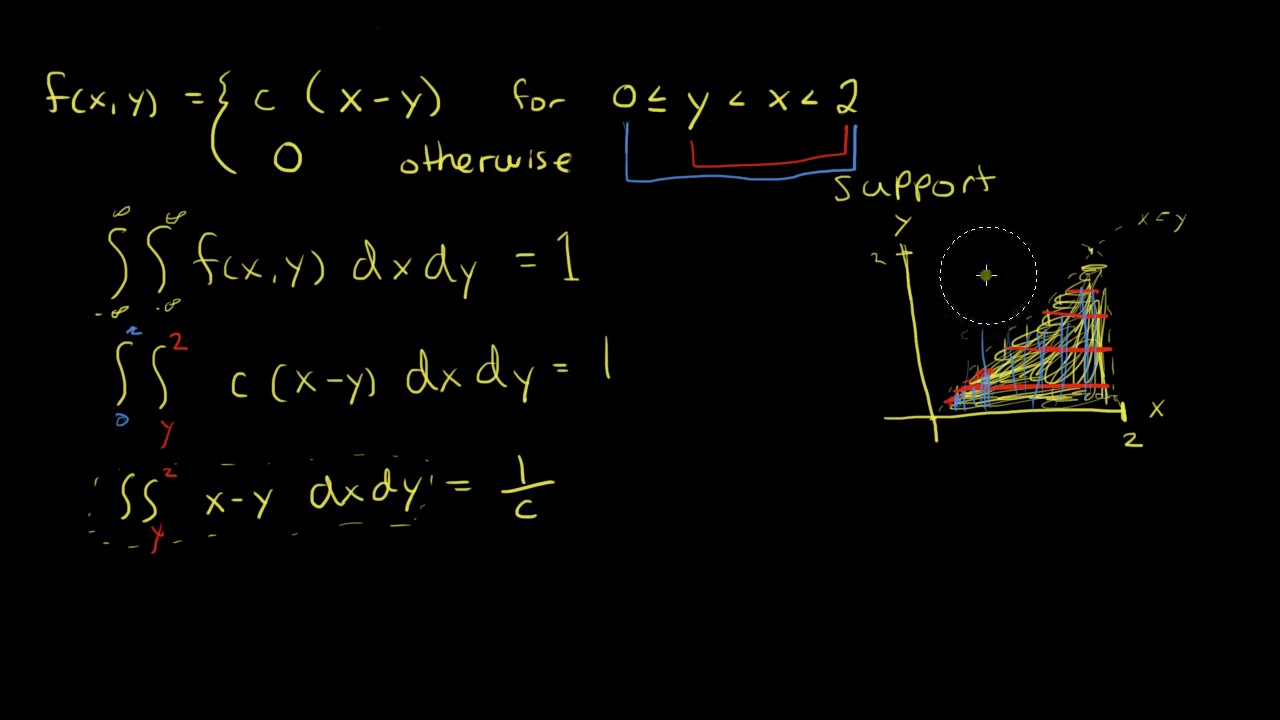 f(x,y) = { c (x-y) for 0 ≤ y < x < 2
0 otherwise
support
∫_{-∞}^{∞} ∫_{-∞}^{∞} f(x,y) dx dy = 1
y
x = y
2
∫_0^2 ∫_y^2 c (x-y) dx dy = 1
x
2
∫∫_y^2 x-y dx dy = 1/c